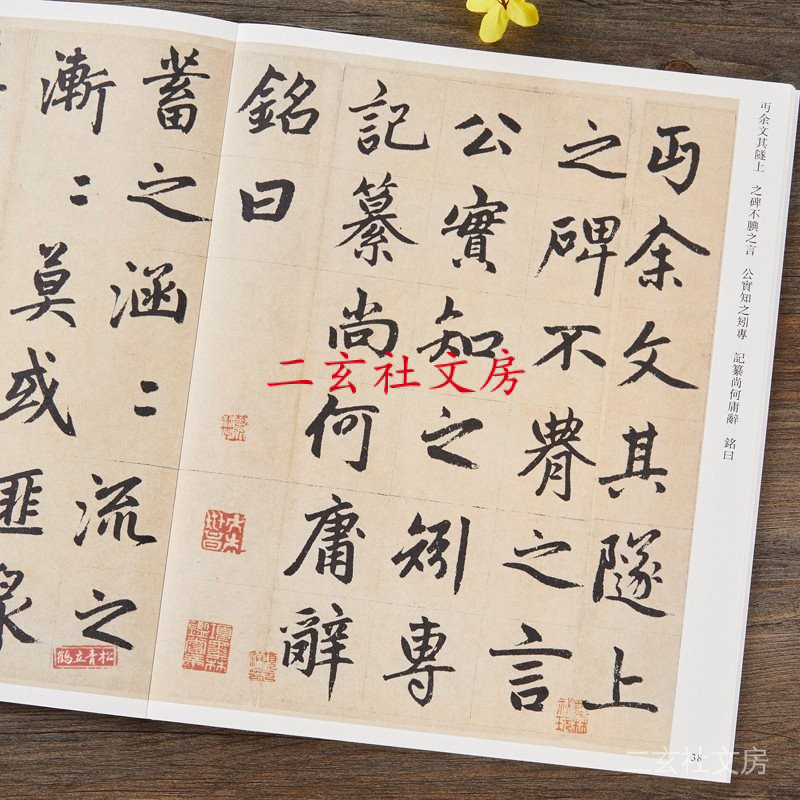 丐余文其隧上 之碑不腆之言 公實知之矧專 記纂尚何庸辭 銘曰
丐余文其隧上
之碑不腆之言
公實知之矧專
記纂尚何庸辭
銘曰
蓄之涵〻流之
漸〻莫或匪
鶴立青松
二玄社文房
38
二玄社文房